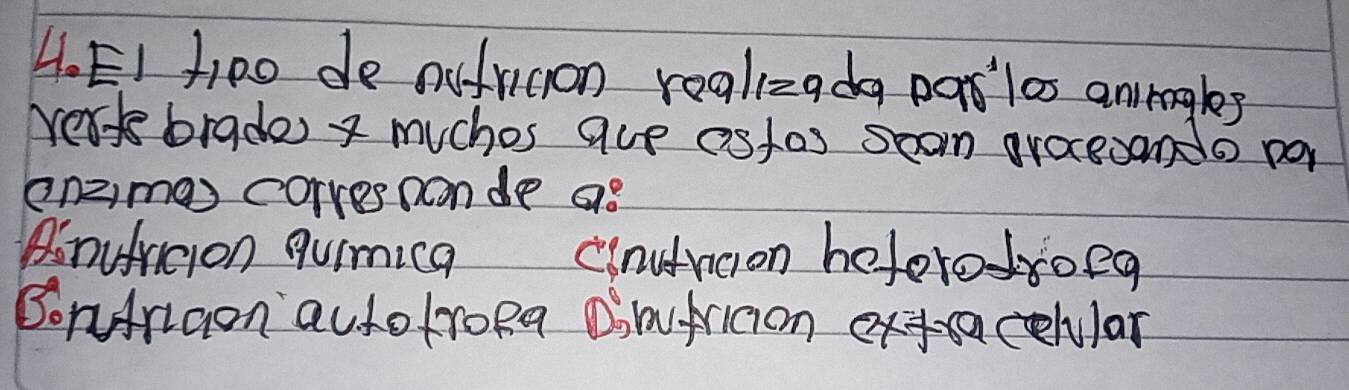 4. El tipo de nutricion realizada por los animales
vertebrados y muchos que estas sean procesando por
enzimas corresponde a:
A. nutricion quimica C. nutricion heterotrofa
B. nutricion autotrofa D. nutricion extracelular